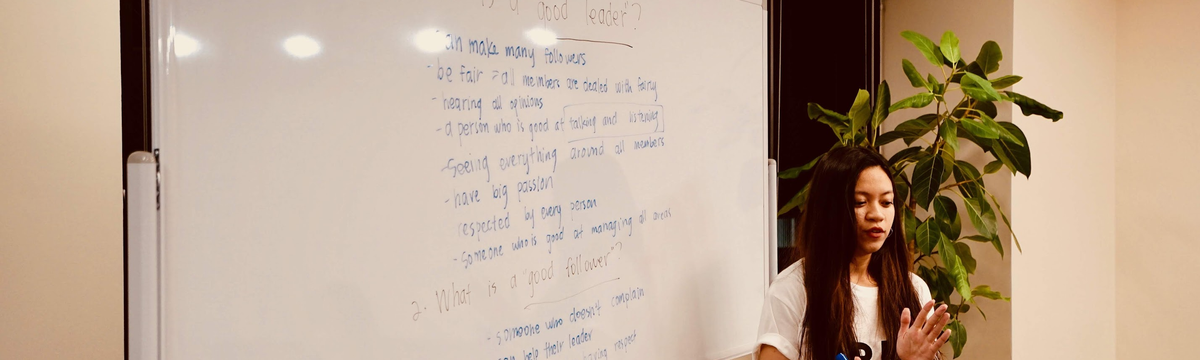 is a "good leader"?
- can make many followers
- be fair = all members are dealed with fairly
- hearing all opinions
- a person who is good at talking and listening
- seeing everything around all members
- have big passion
respected by every person
- someone who is good at managing all areas
2. What is a "good follower"?
- someone who doesn't complain
can help their leader
having respect